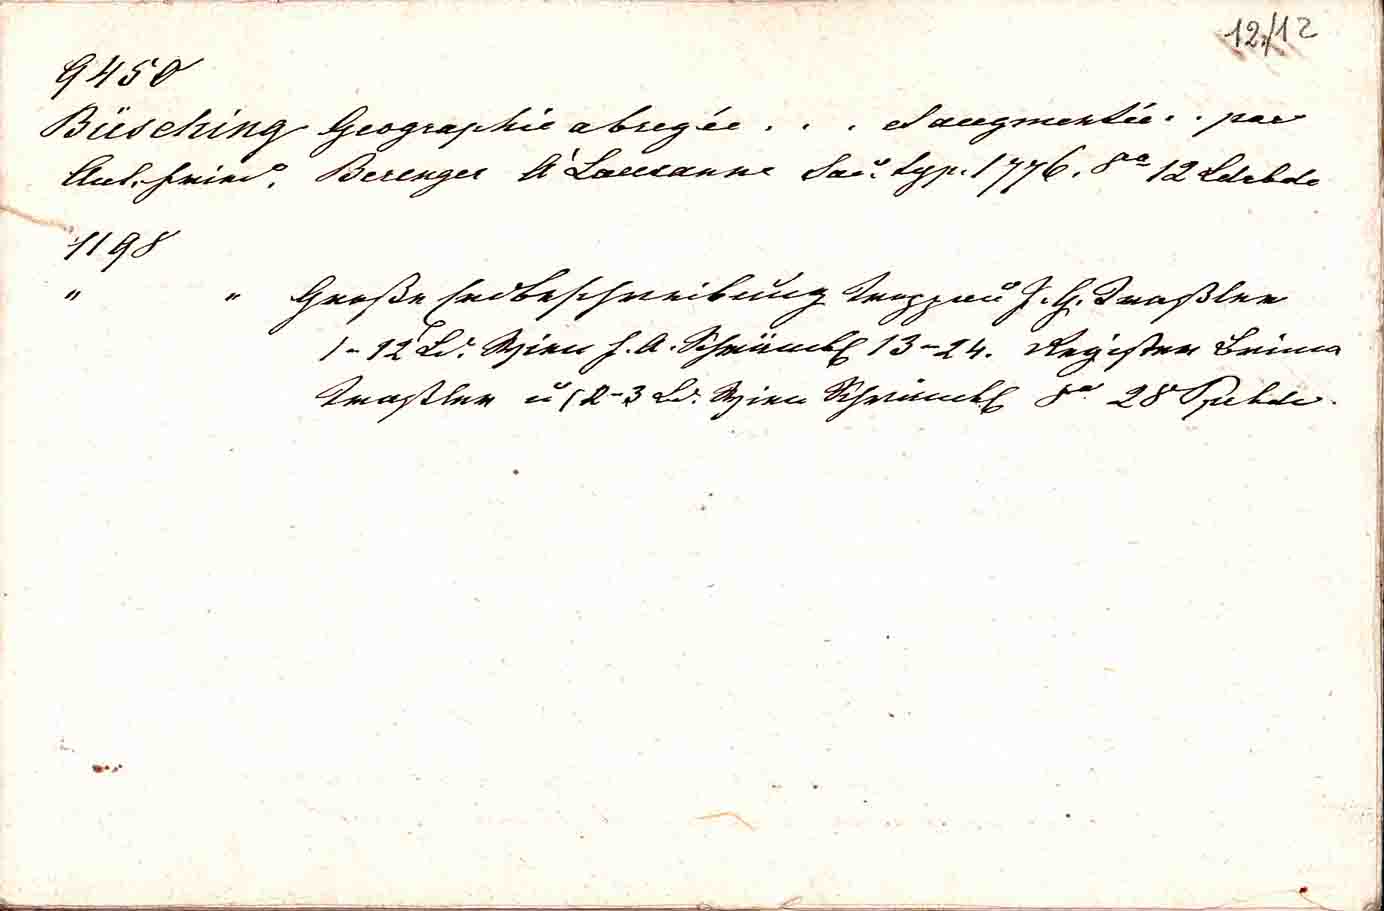 12/12
9450
Büsching Geographie abregée . . . & augmentée . . par
Ant. Fried. Berenger À Lausanne Soc. typ. 1776. 8° 12 Ldrbde
1198
" " Große Erdbeschreibung Troppau J. G. Traßler
1-12 Bd. Wien F. A. Schrämbl 13-24. Register Brünn
Traßler u 2-3 Bd. Wien Schrämbl 8° 28 Ppbde.